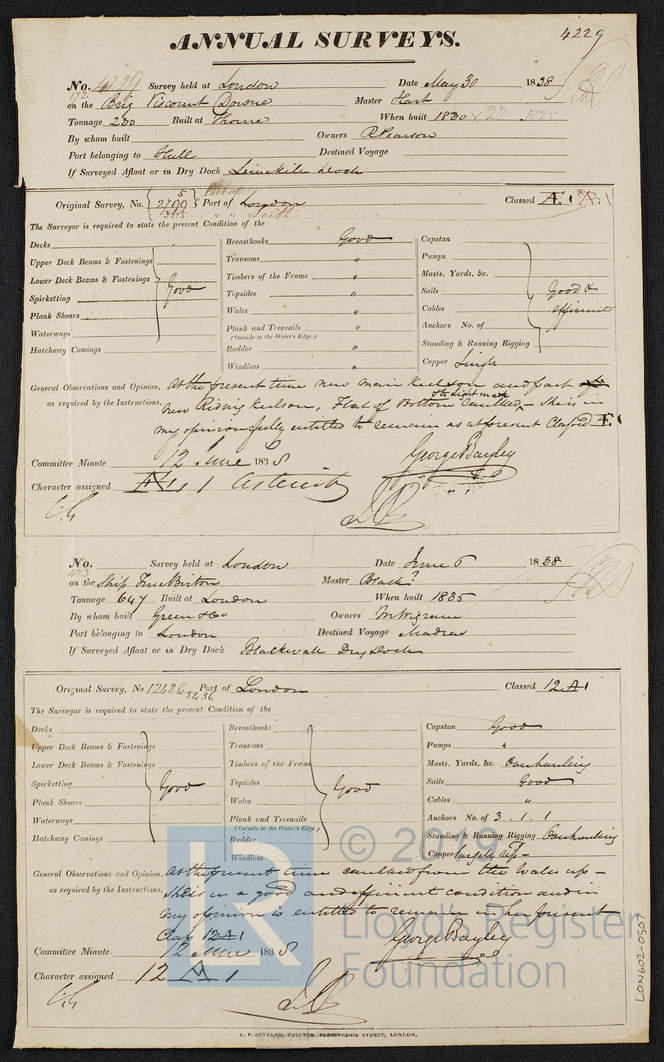 4229
ANNUAL SURVEYS.
No. 4229 Survey held at London Date May 30 1838
172
on the Brig Viscount Downe Master Hart
Tonnage 200 Built at Thorne When built 1800
By whom built Owners R Pearson
Port belonging to Hull Destined Voyage
If Surveyed Afloat or in Dry Dock Limekiln Dock
Original Survey, No. Port of London Classed
Port of
" " Leith
The Surveyor is required to state the present Condition of the
Decks
Upper Deck Beams & Fastenings
Lower Deck Beams & Fastenings
Spirketting
Plank Shears
Waterways
Hatchway Comings
Good
Breasthooks Good
Transoms "
Timbers of the Frame "
Topsides "
Wales "
Plank and Treenails "
(Outside to the Water's Edge.)
Rudder "
Windlass "
Capstan
Pumps
Masts, Yards, &c.
Sails
Cables
Anchors No. of
Standing & Running Rigging
Good &
efficient
Copper Single
General Observations and Opinion, At the present time new main keelson and part of
to light mark
as required by the Instructions, new Riding keelson, Flat of Bottom caulked - She is in
my opinion fully entitled to remain as at present Classed
George Bayley
Committee Minute 12 June 1838
Character assigned 1 Asterisk
No. Survey held at London Date June 6 1838
403
on the Ship True Briton Master Beach
Tonnage 647 Built at London When built 1835
By whom built Green & Co Owners M Wigram
Port belonging to London Destined Voyage Madras
If Surveyed Afloat or in Dry Dock Blackwall Dry Dock
Original Survey, No Port of London Classed 12 A 1
The Surveyor is required to state the present Condition of the
Decks
Upper Deck Beams & Fastenings
Lower Deck Beams & Fastenings
Spirketting
Plank Shears
Waterways
Hatchway Comings
Good
Breasthooks
Transoms
Timbers of the Frame
Topsides
Wales
Plank and Treenails
(Outside to the Water's Edge)
Rudder
Windlass
Good
Capstan Good
Pumps "
Masts, Yards, &c. Overhauling
Sails Good
Cables "
Anchors No. of 3 . 1 . 1
Standing & Running Rigging Overhauling
Copper
General Observations and Opinion, At the present time caulked from the Wales up -
as required by the Instructions, She is in a good and efficient condition and in
my opinion is entitled to remain in her present
Class 12 A 1
George Bayley
Committee Minute 12 June 1838
Character assigned 12 A 1
© 2019
LR
Lloyd's Register
Foundation
LON602-0507
C. F. SEYFANG, PRINTER, FARRINGDON STREET, LONDON.